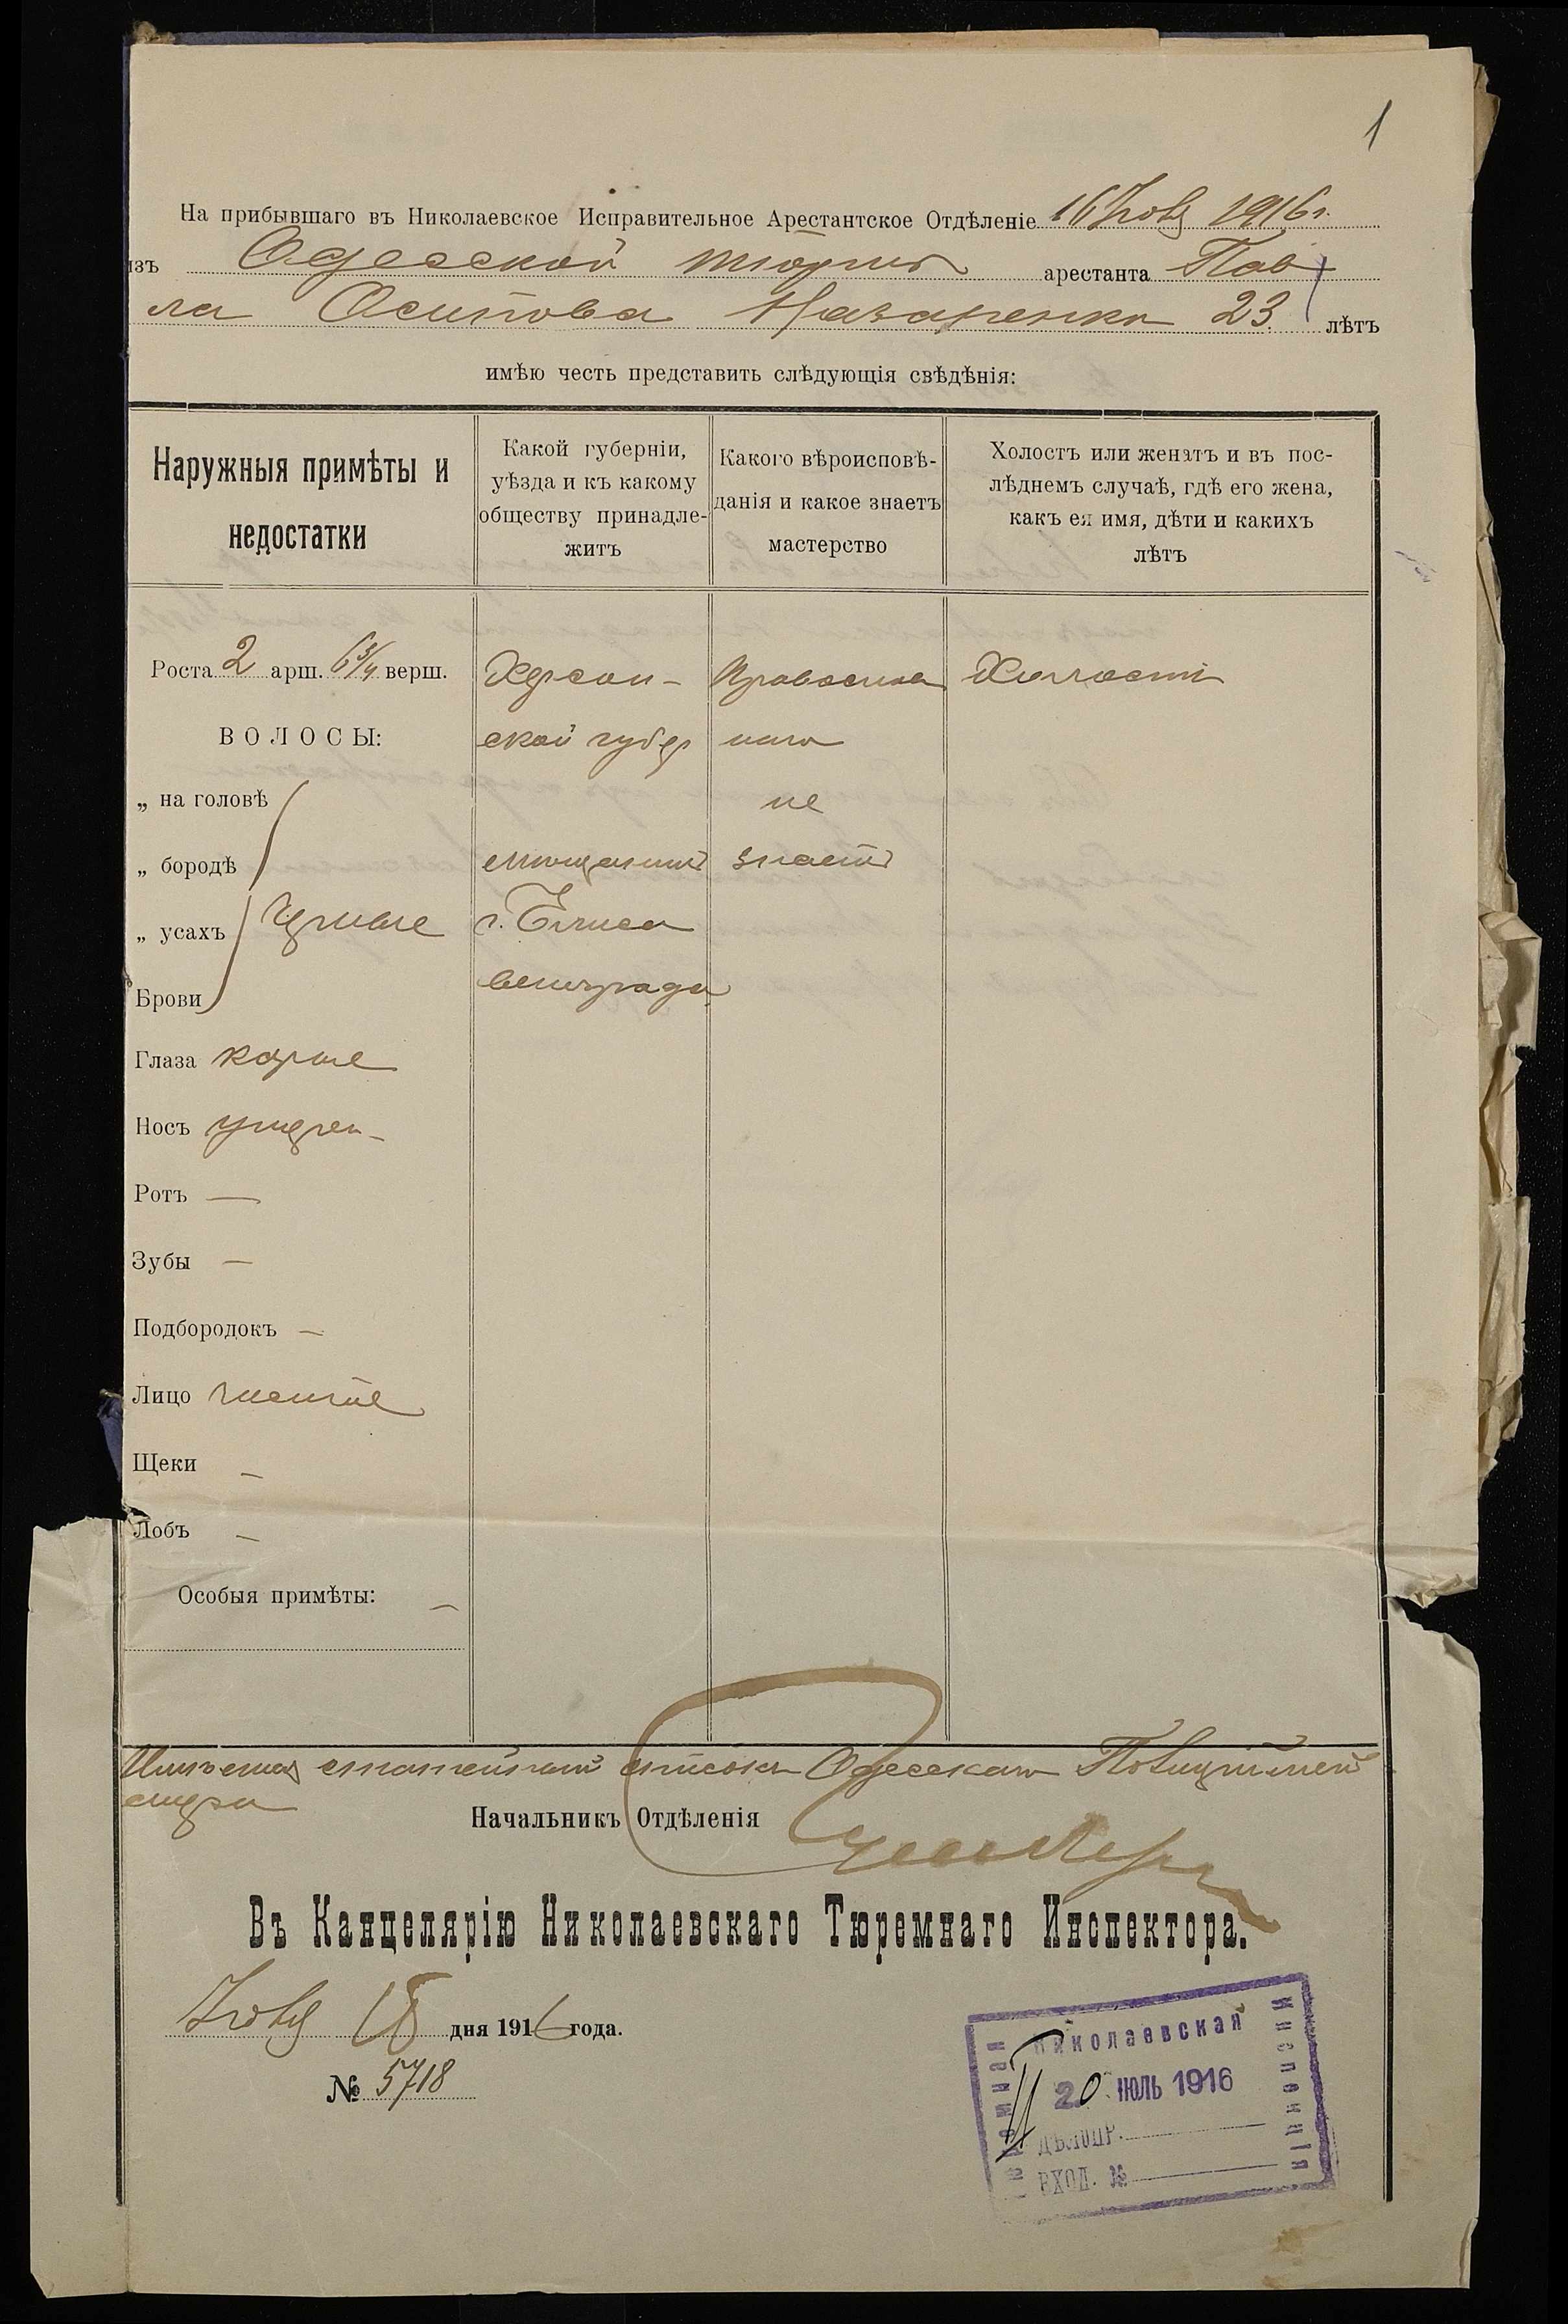 1
На прибывшаго въ Николаевское Исправительное Арестантское Отдѣленіе 16 Іюля 1916 г.
изъ Одесской тюрьмы арестанта Пав
ла Осипова Назаренко 23 лѣтъ
имѣю честь представить слѣдующія свѣдѣнія:
Наружныя примѣты и
недостатки
Какой губерніи,
уѣзда и къ какому
обществу принадле-
житъ
Какого вѣроисповѣ-
данія и какое знаетъ
мастерство
Холостъ или женатъ и въ пос-
лѣднемъ случаѣ, гдѣ его жена,
какъ ея имя, дѣти и какихъ
лѣтъ
Роста 2 арш. 6 3/4 верш.
ВОЛОСЫ:
„ на головѣ
„ бородѣ
„ усахъ черные
Брови
Глаза карие
Носъ умерен-
Ротъ —
Зубы —
Подбородокъ —
Лицо чистое
Щеки —
Лобъ —
Особыя примѣты: —
Херсон-
ской губер
мещанинъ
г. Елиса
ветграда
Православ
наго
не
знаетъ
Холостъ
статейный списокъ Одесской
Начальникъ Отдѣленія
Въ Канцелярію Николаевскаго Тюремнаго Инспектора.
Іюля 18 дня 1916 года.
№ 5718
Николаевская
Тюремная
Инспекція
20 ІЮЛЬ 1916
ДѢЛОПР.
ВХОД. №